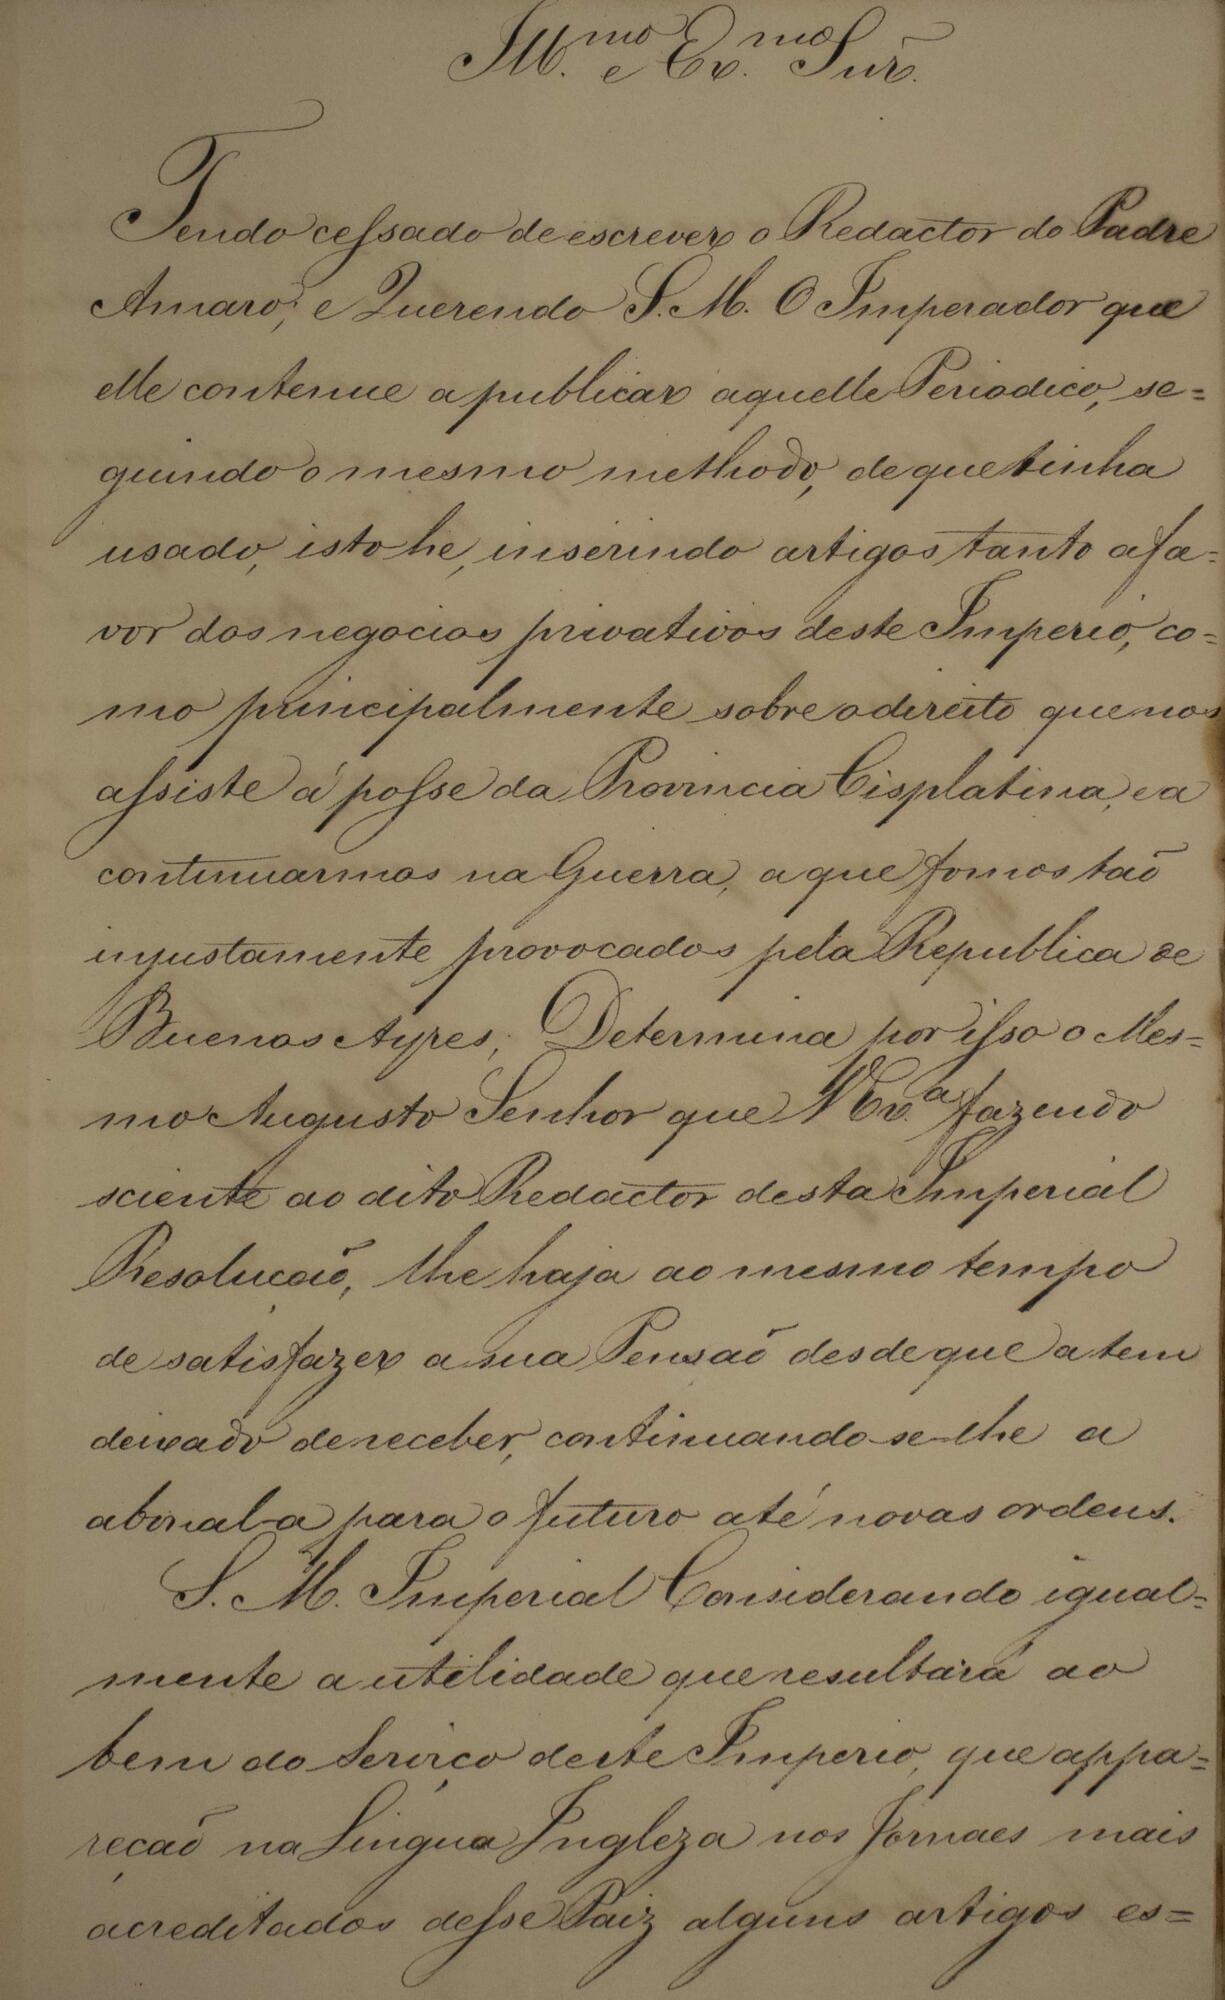 Ill.mo e Ex.mo Snr̃.
Tendo cessado de escrever o Redactor do Padre
Amaro; e Querendo S. M. O Imperador que
elle contenue a publicar aquelle Periodico, se=
guindo o mesmo methodo, de que tinha
usado, isto he, inserindo artigos tanto a fa=
vor dos negocios privativos deste Imperio, co=
mo principalmente sobre o direito que nos
assiste á posse da Provincia Cisplatina, e a
continuarmos na Guerra, a que fomos tão
injustamente provocados pela Republica de
Buenos Ayres; Determina por isso o Mes=
mo Augusto Senhor que V Ex.a fazendo
sciente ao dito Redactor desta Imperial
Resolução, lhe haja ao mesmo tempo
de satisfazer a sua Pensão desde que a tem
deixado de receber, continuando-se-lhe a
abonal-a para o futuro até novas ordens.
S. M. Imperial Considerando igual=
mente a utilidade que resultará ao
bem do Serviço deste Imperio, que appa=
reção na Lingua Ingleza nos Jornaes mais
acreditados desse Paiz alguns artigos es=